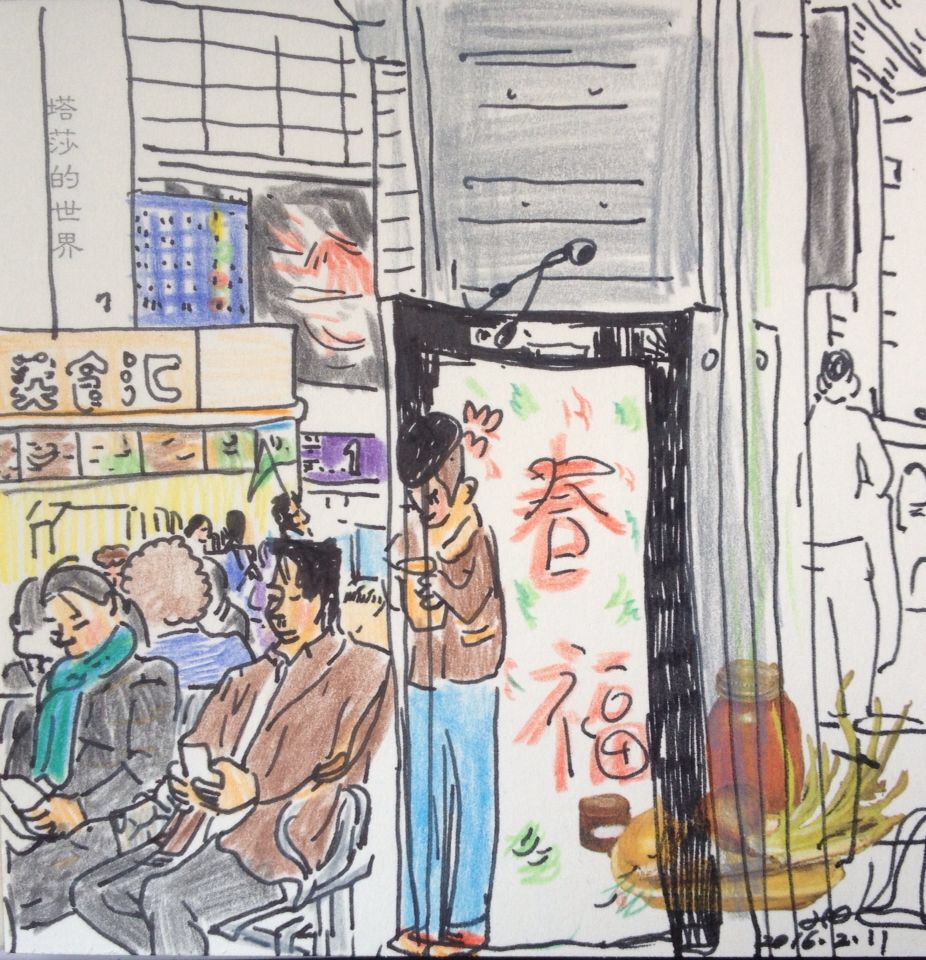 塔莎的世界
美食汇
1
春
福
2016.2.11